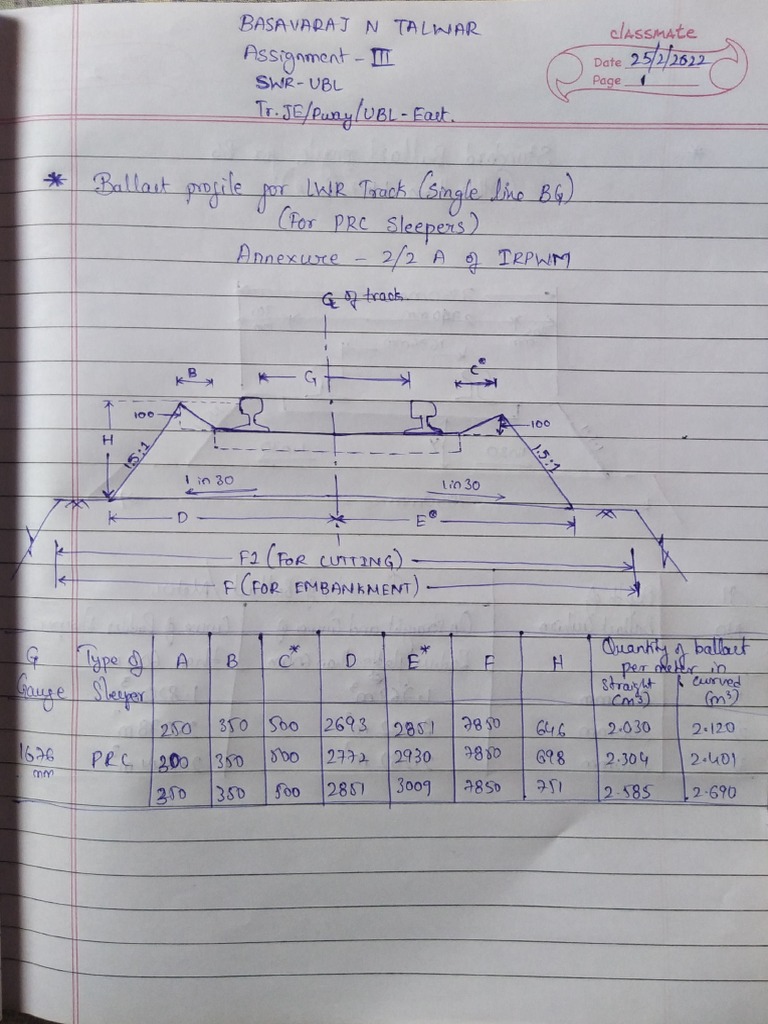 BASAVARAJ N TALWAR
Assignment - III
SWR-UBL
Tr.JE/Pway/UBL-East.
classmate
Date 25/2/2022
Page 1
* Ballast profile for LWR Track (Single line BG)
(For PRC Sleepers)
Annexure - 2/2 A of IRPWM
℄ of track
B G C*
H 100 100
1.5:1 1.5:1
1 in 30 1 in 30
D E*
F1 (FOR CUTTING)
F (FOR EMBANKMENT)
G Gauge Type of Sleeper A B C* D E* F H Quantity of ballast per meter in
straight (m³) curved (m³)
250 350 500 2693 2851 7850 646 2.030 2.120
1676 mm PRC 300 350 500 2772 2930 7850 698 2.304 2.401
350 350 500 2851 3009 7850 751 2.585 2.690